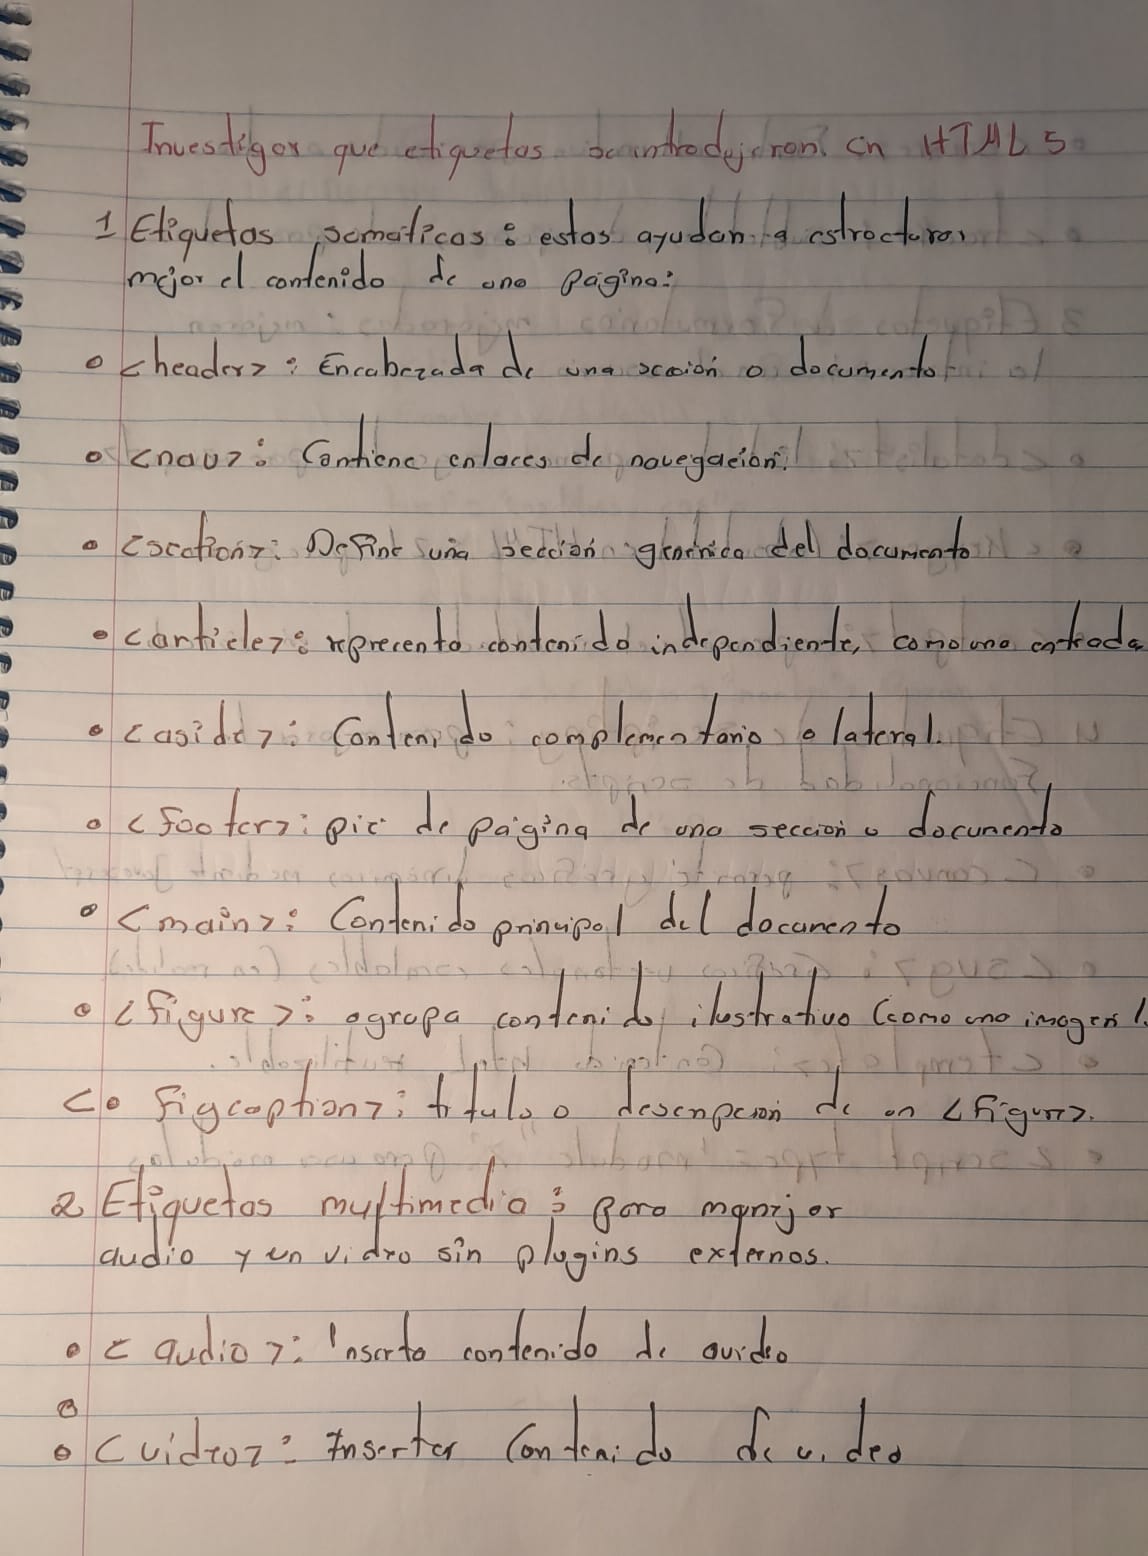 Investigar que etiquetas se introdujeron en HTML 5
1 Etiquetas somaticas: estas ayudan a estructurar
mejor el contenido de una pagina:
• <header>: Encabezada de una sección o documento
• <nav>: Contiene enlaces de navegación.
• <section>: Define una sección generica del documento
• <article>: reprecenta contenido independiente, como una entrada
• <aside>: Contenido complementario o lateral.
• <footer>: pie de página de una seccion o documento
• <main>: Contenido principal del documento
• <figure>: agrupa contenido ilustrativo (como una imagen).
<• figcaption>: titulo o descripcion de un <figure>.
2 Etiquetas multimedia: para manejar
audio y un video sin plugins externos.
• <audio>: Inserta contenido de auidio
• <video>: Insertar Contenido de video